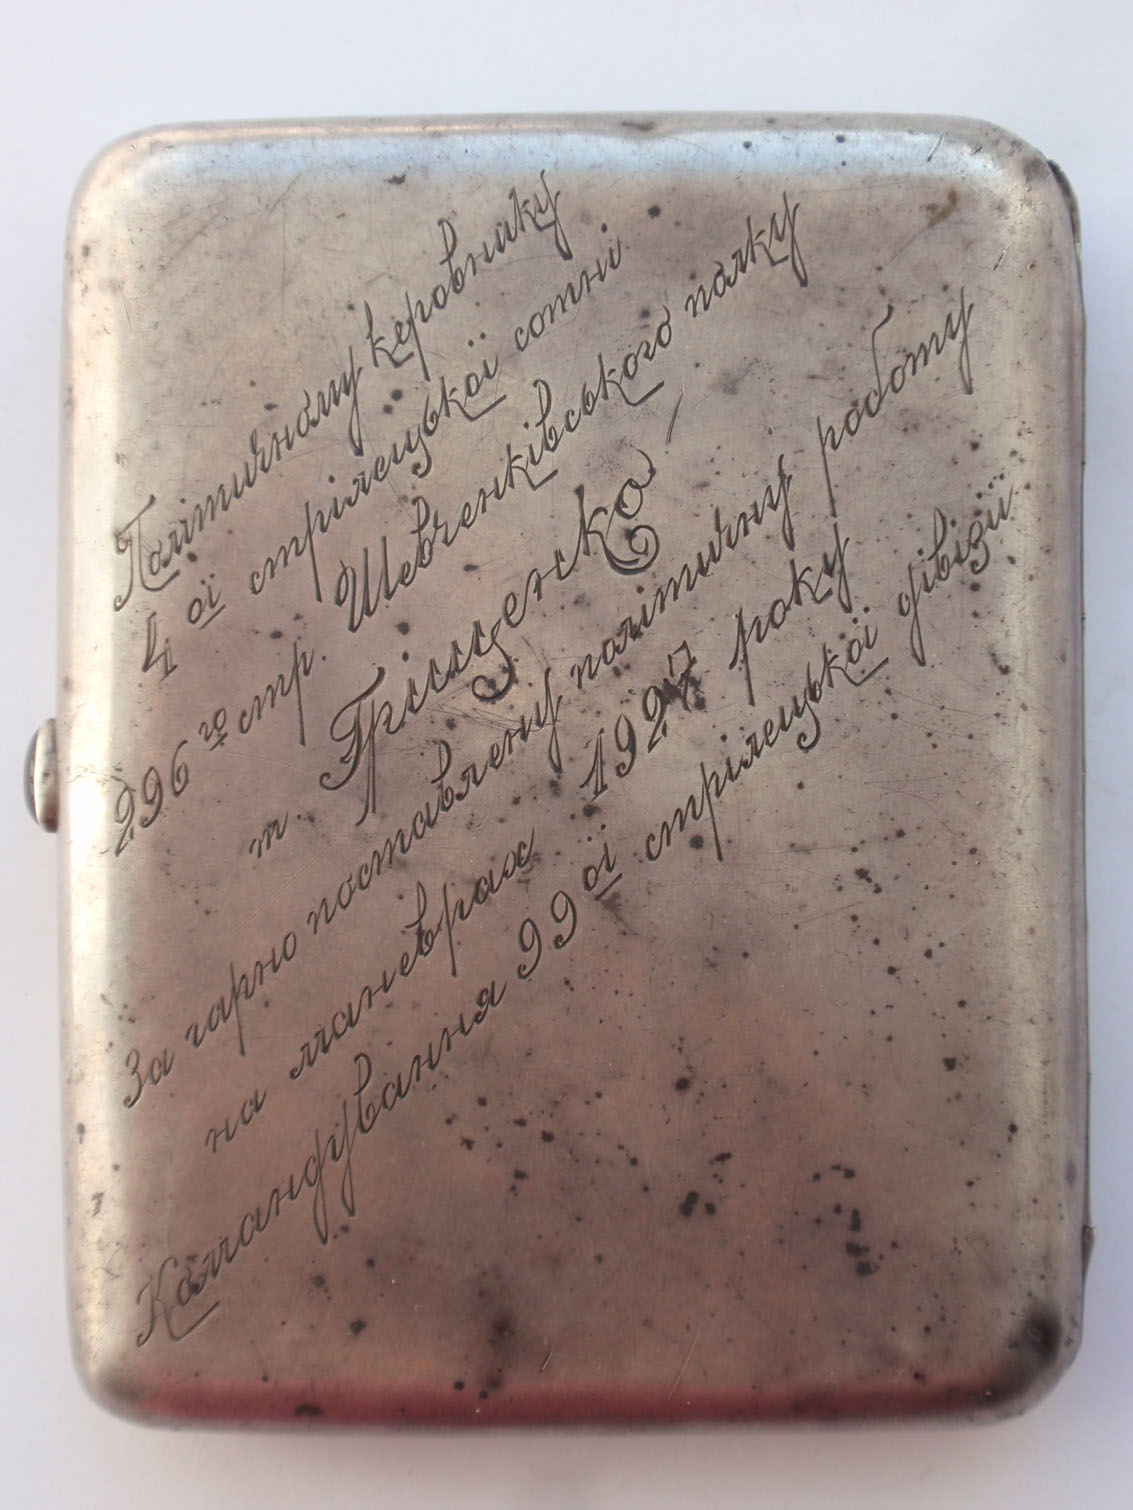 Політичному керовнику
4ої стрілецької сотні
296го стр. Шевченківського полку
т. Гріщенко
За гарно поставлену політичну роботу
на маневрах 1927 року
Командування 99ої стрілецької дівізії